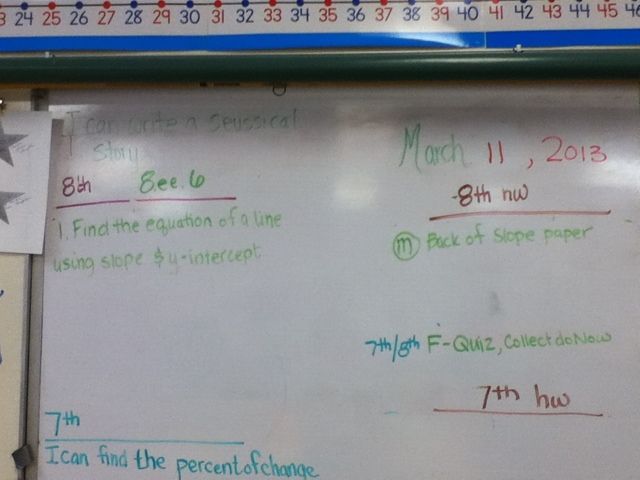 24 25 26 27 28 29 30 31 32 33 34 35 36 37 38 39 40 41 42 43 44 45
I can write a seussical
story
March 11, 2013
8th 8.ee.6
1. Find the equation of a line
using slope & y-intercept
8th hw
m Back of slope paper
7th/8th F-Quiz, Collect do Now
7th hw
7th
I can find the percent of change